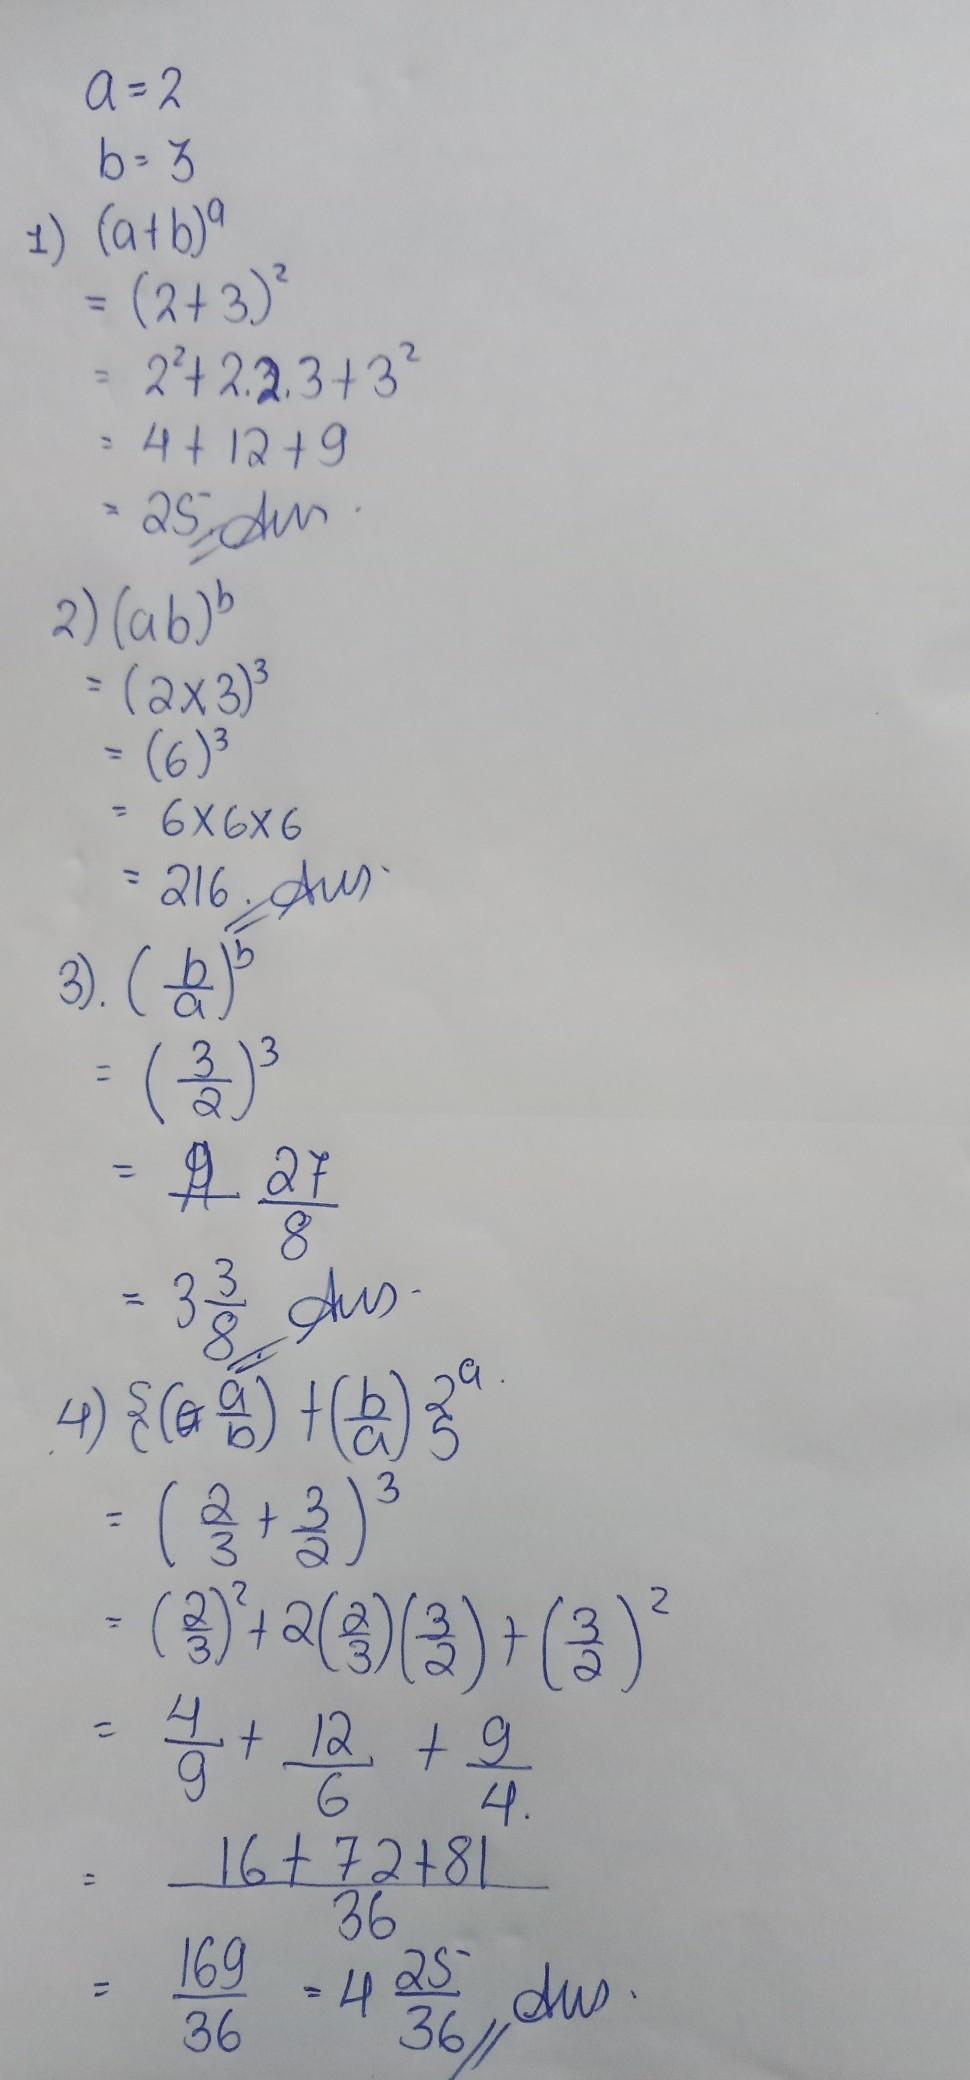 a = 2
b = 3
1) (a+b)^a
= (2+3)^2
= 2^2 + 2.2.3 + 3^2
= 4 + 12 + 9
= 25 Ans.
2) (ab)^b
= (2×3)^3
= (6)^3
= 6×6×6
= 216. Ans.
3). (b/a)^b
= (3/2)^3
= 27/8
= 3 3/8 Ans.
4) {(a/b) + (b/a)}^a.
= (2/3 + 3/2)^3
= (2/3)^2 + 2(2/3)(3/2) + (3/2)^2
= 4/9 + 12/6 + 9/4.
= 16+72+81/36
= 169/36 = 4 25/36 Ans.